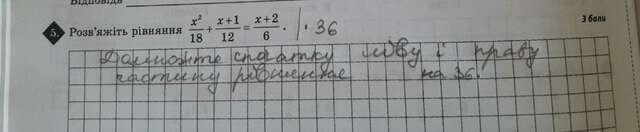 Відповідь
3 бали
5. Розв'яжіть рівняння x²/18 + (x+1)/12 = (x+2)/6. | · 36
Домножте спочатку ліву і праву
частину рівняння на 36.